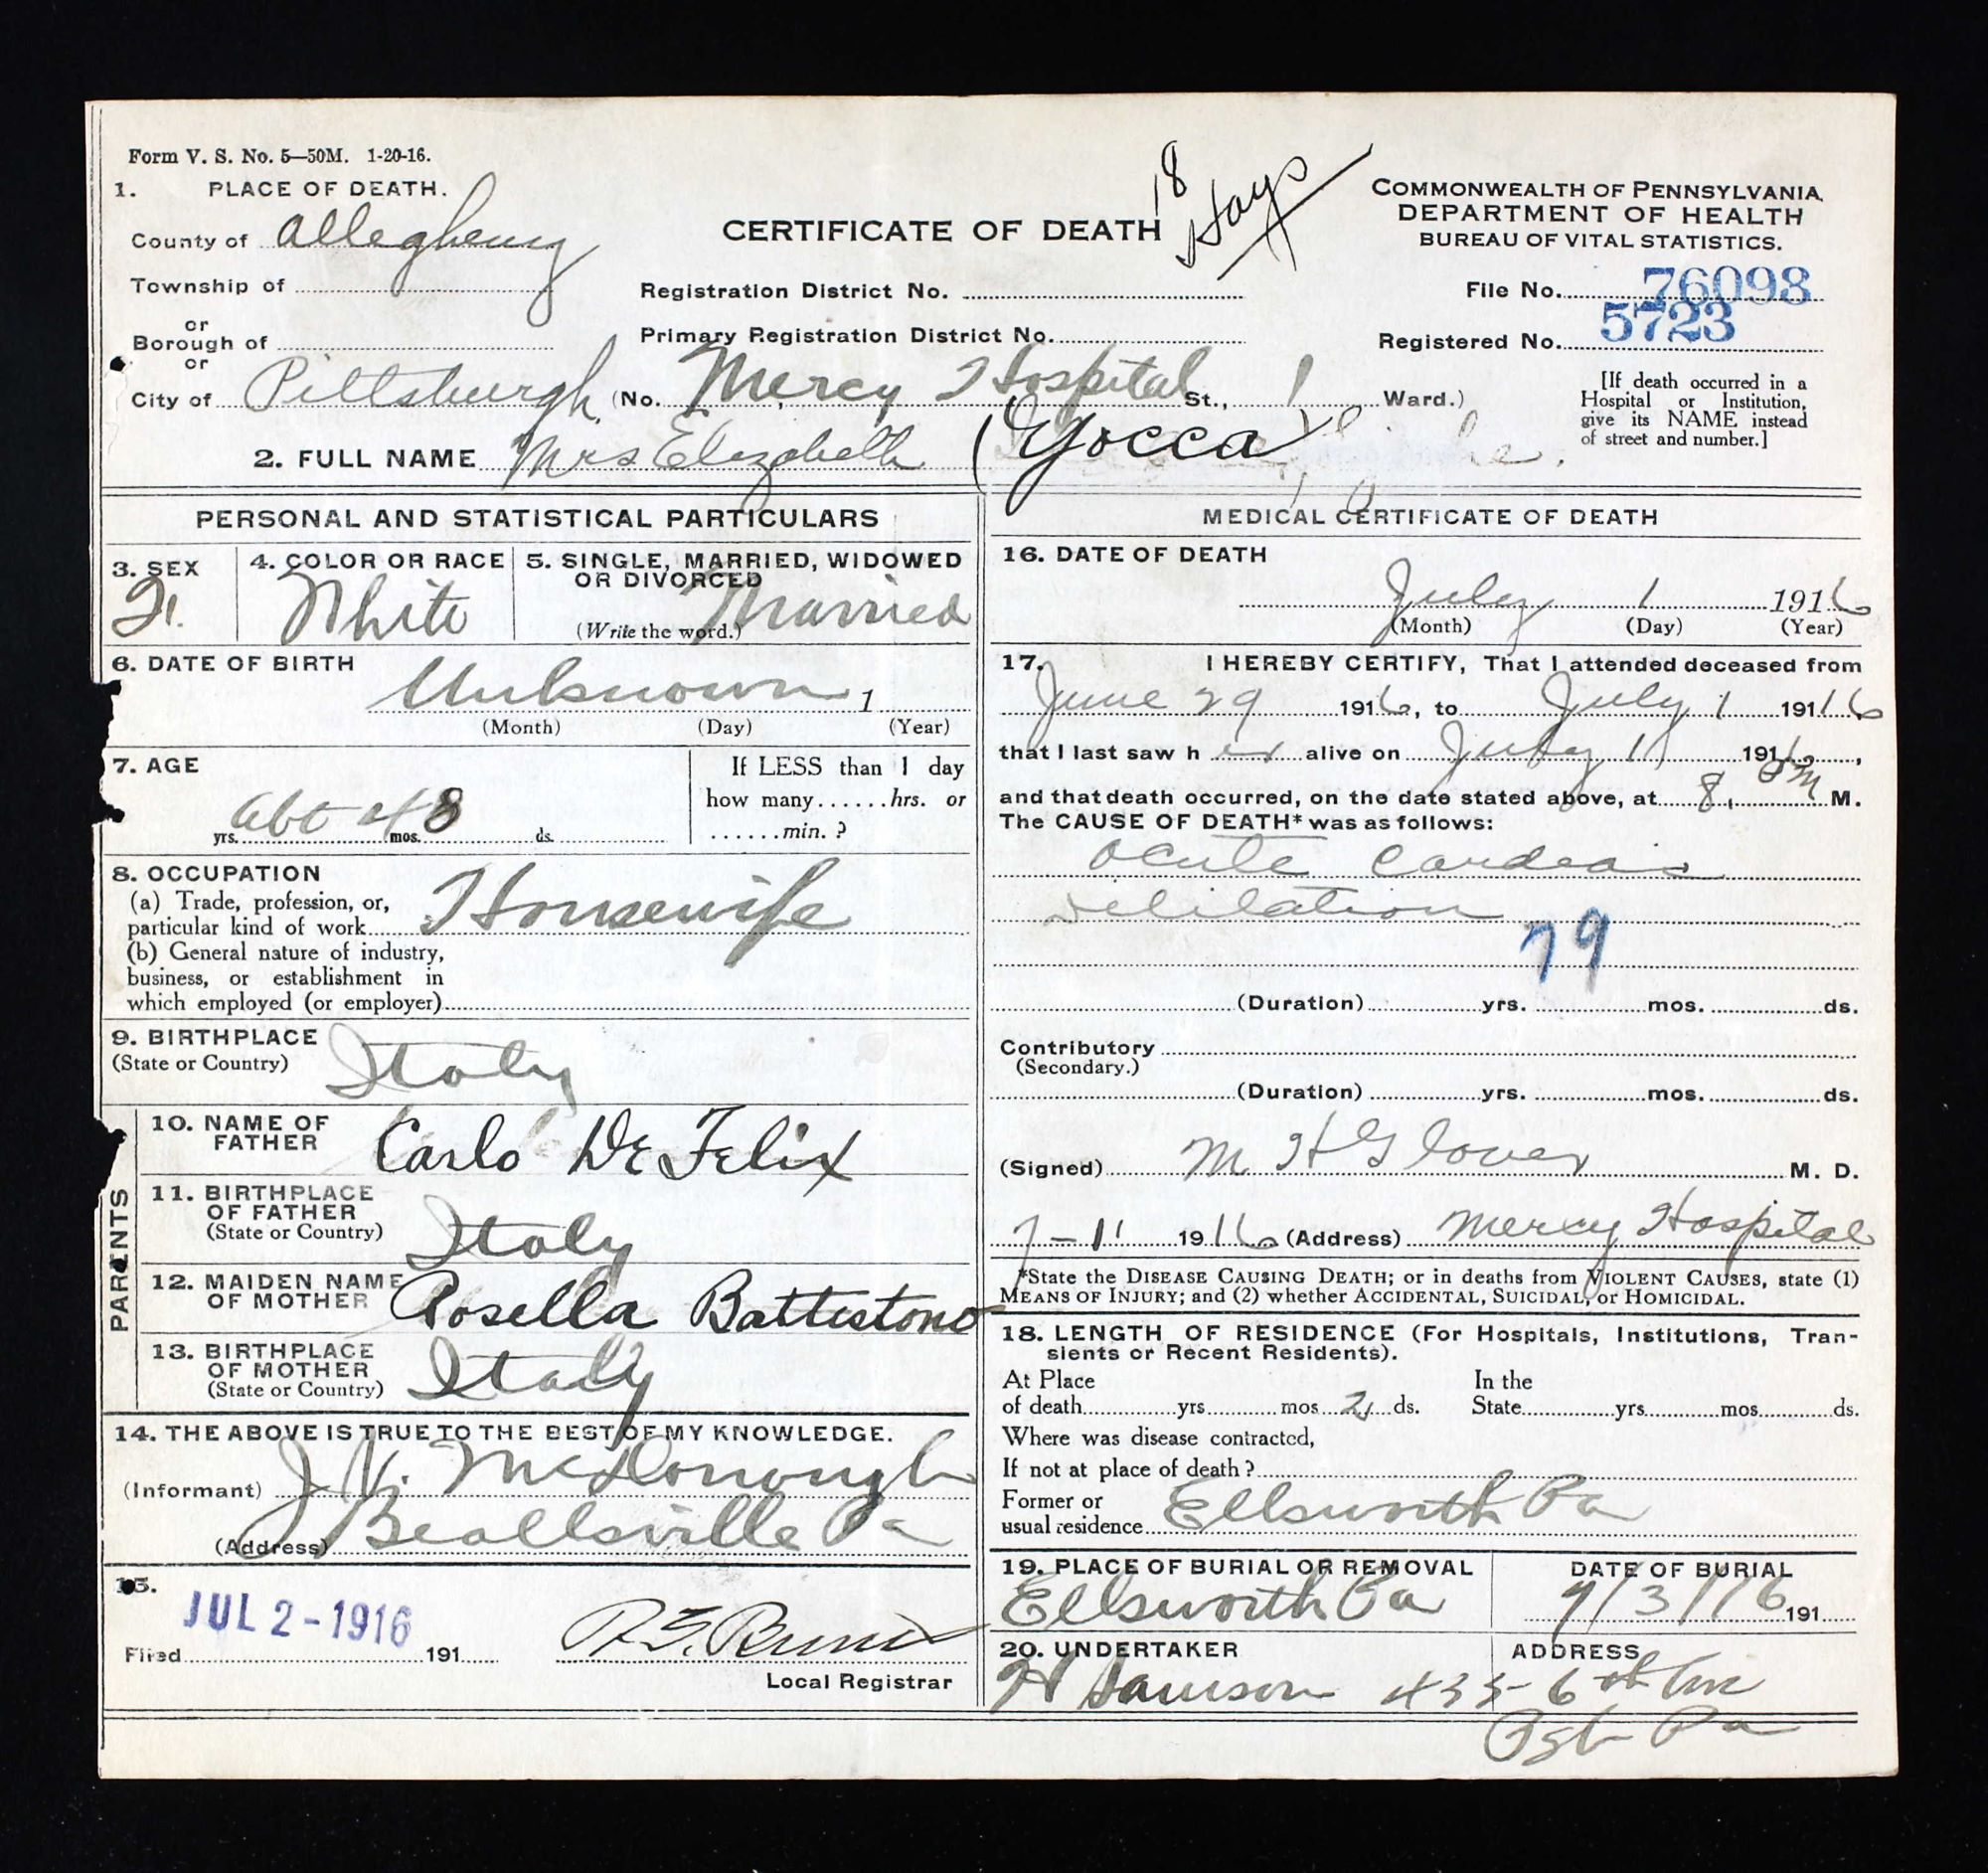 Form V. S. No. 5—50M. 1-20-16.
1. PLACE OF DEATH.
County of Allegheny
Township of
or
Borough of
or
City of Pittsburgh (No. Mercy Hospital St., 1 Ward.)
CERTIFICATE OF DEATH
18
Hays
Registration District No.
Primary Registration District No.
COMMONWEALTH OF PENNSYLVANIA
DEPARTMENT OF HEALTH
BUREAU OF VITAL STATISTICS.
File No. 76093
Registered No. 5723
[If death occurred in a
Hospital or Institution,
give its NAME instead
of street and number.]
2. FULL NAME Mrs Elizabeth (Yocca)
PERSONAL AND STATISTICAL PARTICULARS
3. SEX
F.
4. COLOR OR RACE
White
5. SINGLE, MARRIED, WIDOWED
OR DIVORCED
(Write the word.) Married
6. DATE OF BIRTH
Unknown 1
(Month) (Day) (Year)
7. AGE
abt 48
yrs. mos. ds.
If LESS than 1 day
how many......hrs. or
......min.?
8. OCCUPATION
(a) Trade, profession, or,
particular kind of work Housewife
(b) General nature of industry,
business, or establishment in
which employed (or employer)
9. BIRTHPLACE
(State or Country) Italy
PARENTS
10. NAME OF
FATHER Carlo De Felix
11. BIRTHPLACE
OF FATHER
(State or Country) Italy
12. MAIDEN NAME
OF MOTHER Rosella Battistone
13. BIRTHPLACE
OF MOTHER
(State or Country) Italy
14. THE ABOVE IS TRUE TO THE BEST OF MY KNOWLEDGE.
(Informant) J. V. McDonough
(Address) Beallsville Pa
15.
JUL 2-1916
Filed 191
Local Registrar
MEDICAL CERTIFICATE OF DEATH
16. DATE OF DEATH
July 1 1916
(Month) (Day) (Year)
17. I HEREBY CERTIFY, That I attended deceased from
June 29 1916, to July 1 1916
that I last saw her alive on July 1 1916,
and that death occurred, on the date stated above, at 8, PM M.
The CAUSE OF DEATH* was as follows:
Acute Cardiac
Dilitation
79
(Duration) yrs. mos. ds.
Contributory
(Secondary.)
(Duration) yrs. mos. ds.
(Signed) M H Glover M. D.
7-1 1916 (Address) Mercy Hospital
*State the DISEASE CAUSING DEATH; or in deaths from VIOLENT CAUSES, state (1)
MEANS OF INJURY; and (2) whether ACCIDENTAL, SUICIDAL, or HOMICIDAL.
18. LENGTH OF RESIDENCE (For Hospitals, Institutions, Tran-
sients or Recent Residents).
At Place
of death yrs mos 2 ds.
In the
State yrs mos ds.
Where was disease contracted,
If not at place of death?
Former or
usual residence Ellsworth Pa
19. PLACE OF BURIAL OR REMOVAL
Ellsworth Pa
DATE OF BURIAL
7/3/16 191
20. UNDERTAKER
H Samson
ADDRESS
433-6th Ave
Pgh Pa